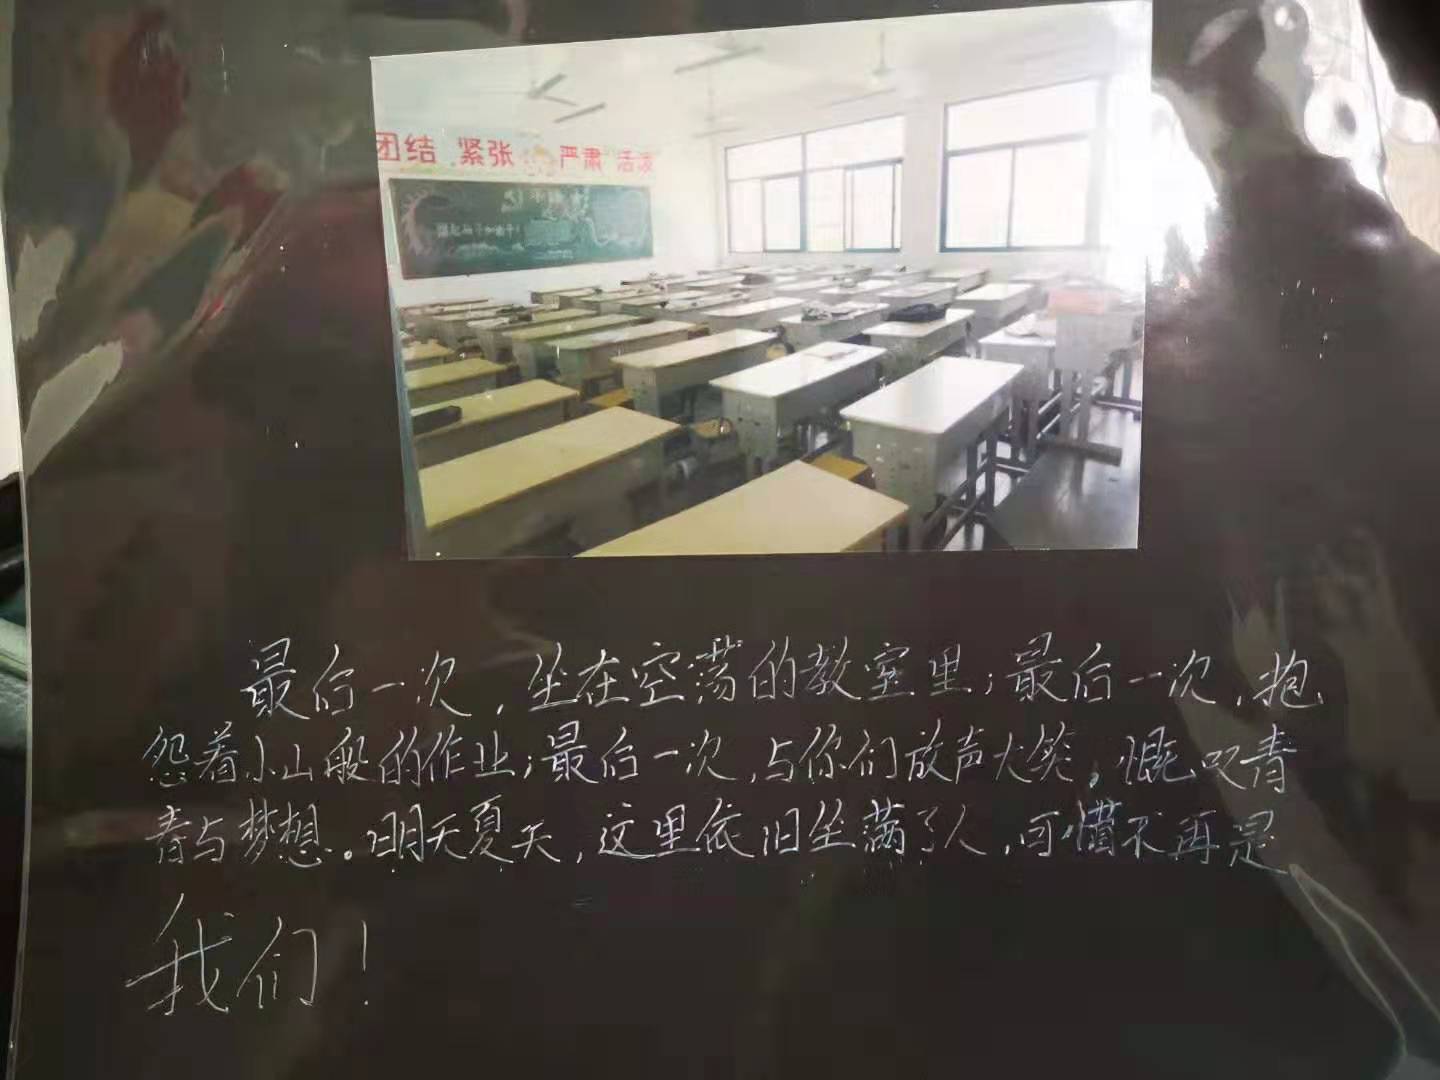 团结 紧张 严肃 活泼
最后一次，坐在空荡的教室里；最后一次，抱
怨着小山般的作业；最后一次，与你们放声大笑，慨叹青
青与梦想。明天夏天，这里依旧坐满了人，可惜不再是
我们！